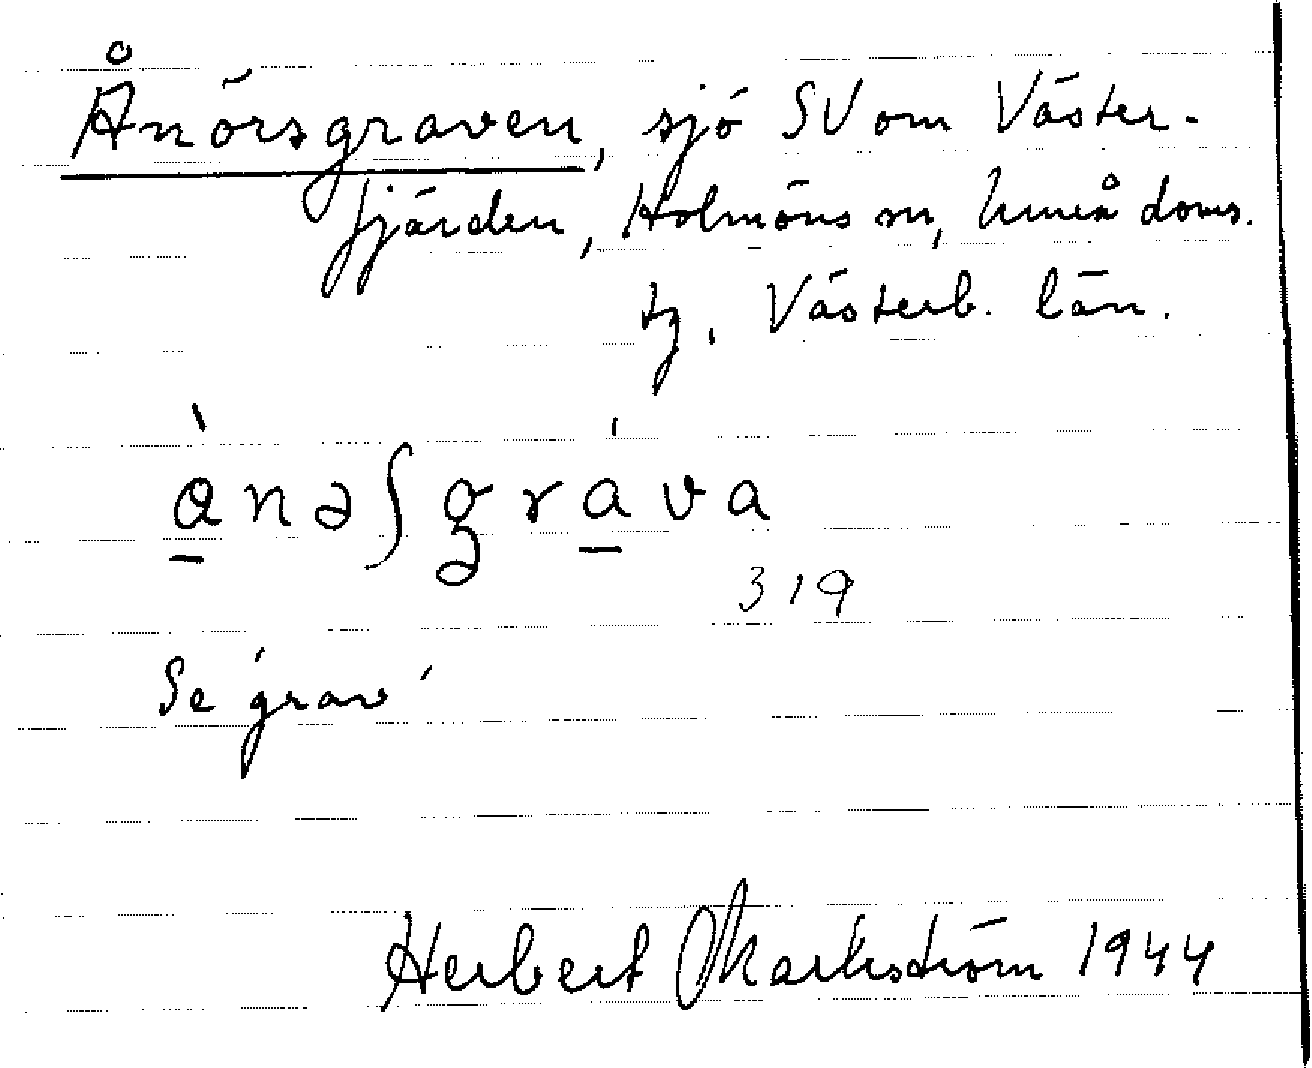 Ånörsgraven, sjö SV om Väster-
fjärden, Holmöns sn, Umeå doms.
tg, Västerb. län.
ànəʃgráva
319
Se 'grav'
Herbert Markström 1944